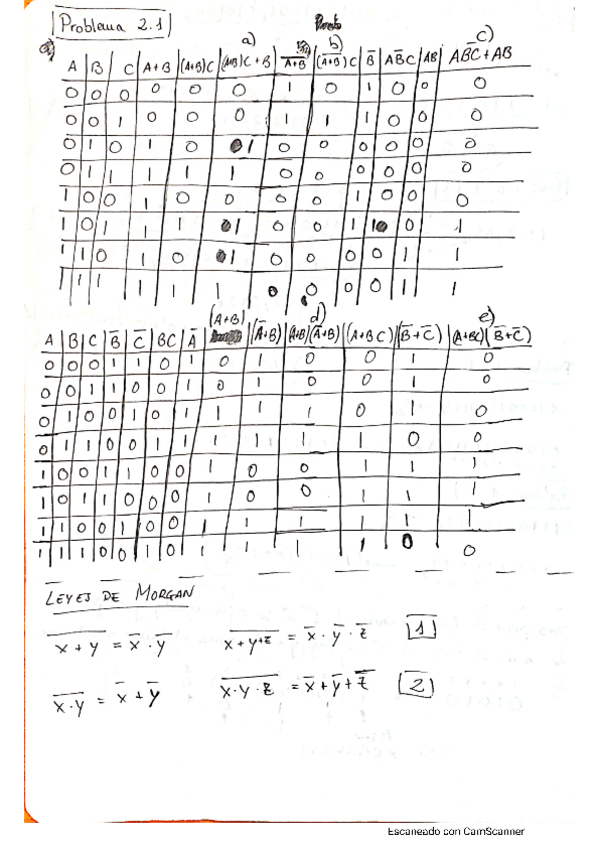 Problema 2.1
a) b) c)
A B C A+B (A+B)C (A+B)C+B A̅+̅B̅ (A̅+̅B̅)C B̅ AB̅C AB AB̅C+AB
0 0 0 0 0 0 1 0 1 0 0 0
0 0 1 0 0 0 1 1 1 0 0 0
0 1 0 1 0 1 0 0 0 0 0 0
0 1 1 1 1 1 0 0 0 0 0 0
1 0 0 1 0 0 0 0 1 0 0 0
1 0 1 1 1 1 0 0 1 1 0 1
1 1 0 1 0 1 0 0 0 0 1 1
1 1 1 1 1 1 0 0 0 0 1 1
d) e)
A B C B̅ C̅ BC A̅ (A+B) (A̅+B) (A+B)(A̅+B) (A+BC) (B̅+C̅) (A+BC)(B̅+C̅)
0 0 0 1 1 0 1 0 1 0 0 1 0
0 0 1 1 0 0 1 0 1 0 0 1 0
0 1 0 0 1 0 1 1 1 1 0 1 0
0 1 1 0 0 1 1 1 1 1 1 0 0
1 0 0 1 1 0 0 1 0 0 1 1 1
1 0 1 1 0 0 0 1 0 0 1 1 1
1 1 0 0 1 0 0 1 1 1 1 1 1
1 1 1 0 0 1 0 1 1 1 1 0 0
LEYES DE MORGAN
x̅ ̅+̅ ̅y̅ = x̅ · y̅ x̅+̅y̅+̅z̅ = x̅ · y̅ · z̅ 1
x̅·̅y̅ = x̅ + y̅ x̅·̅y̅·̅z̅ = x̅ + y̅ + z̅ 2
Escaneado con CamScanner